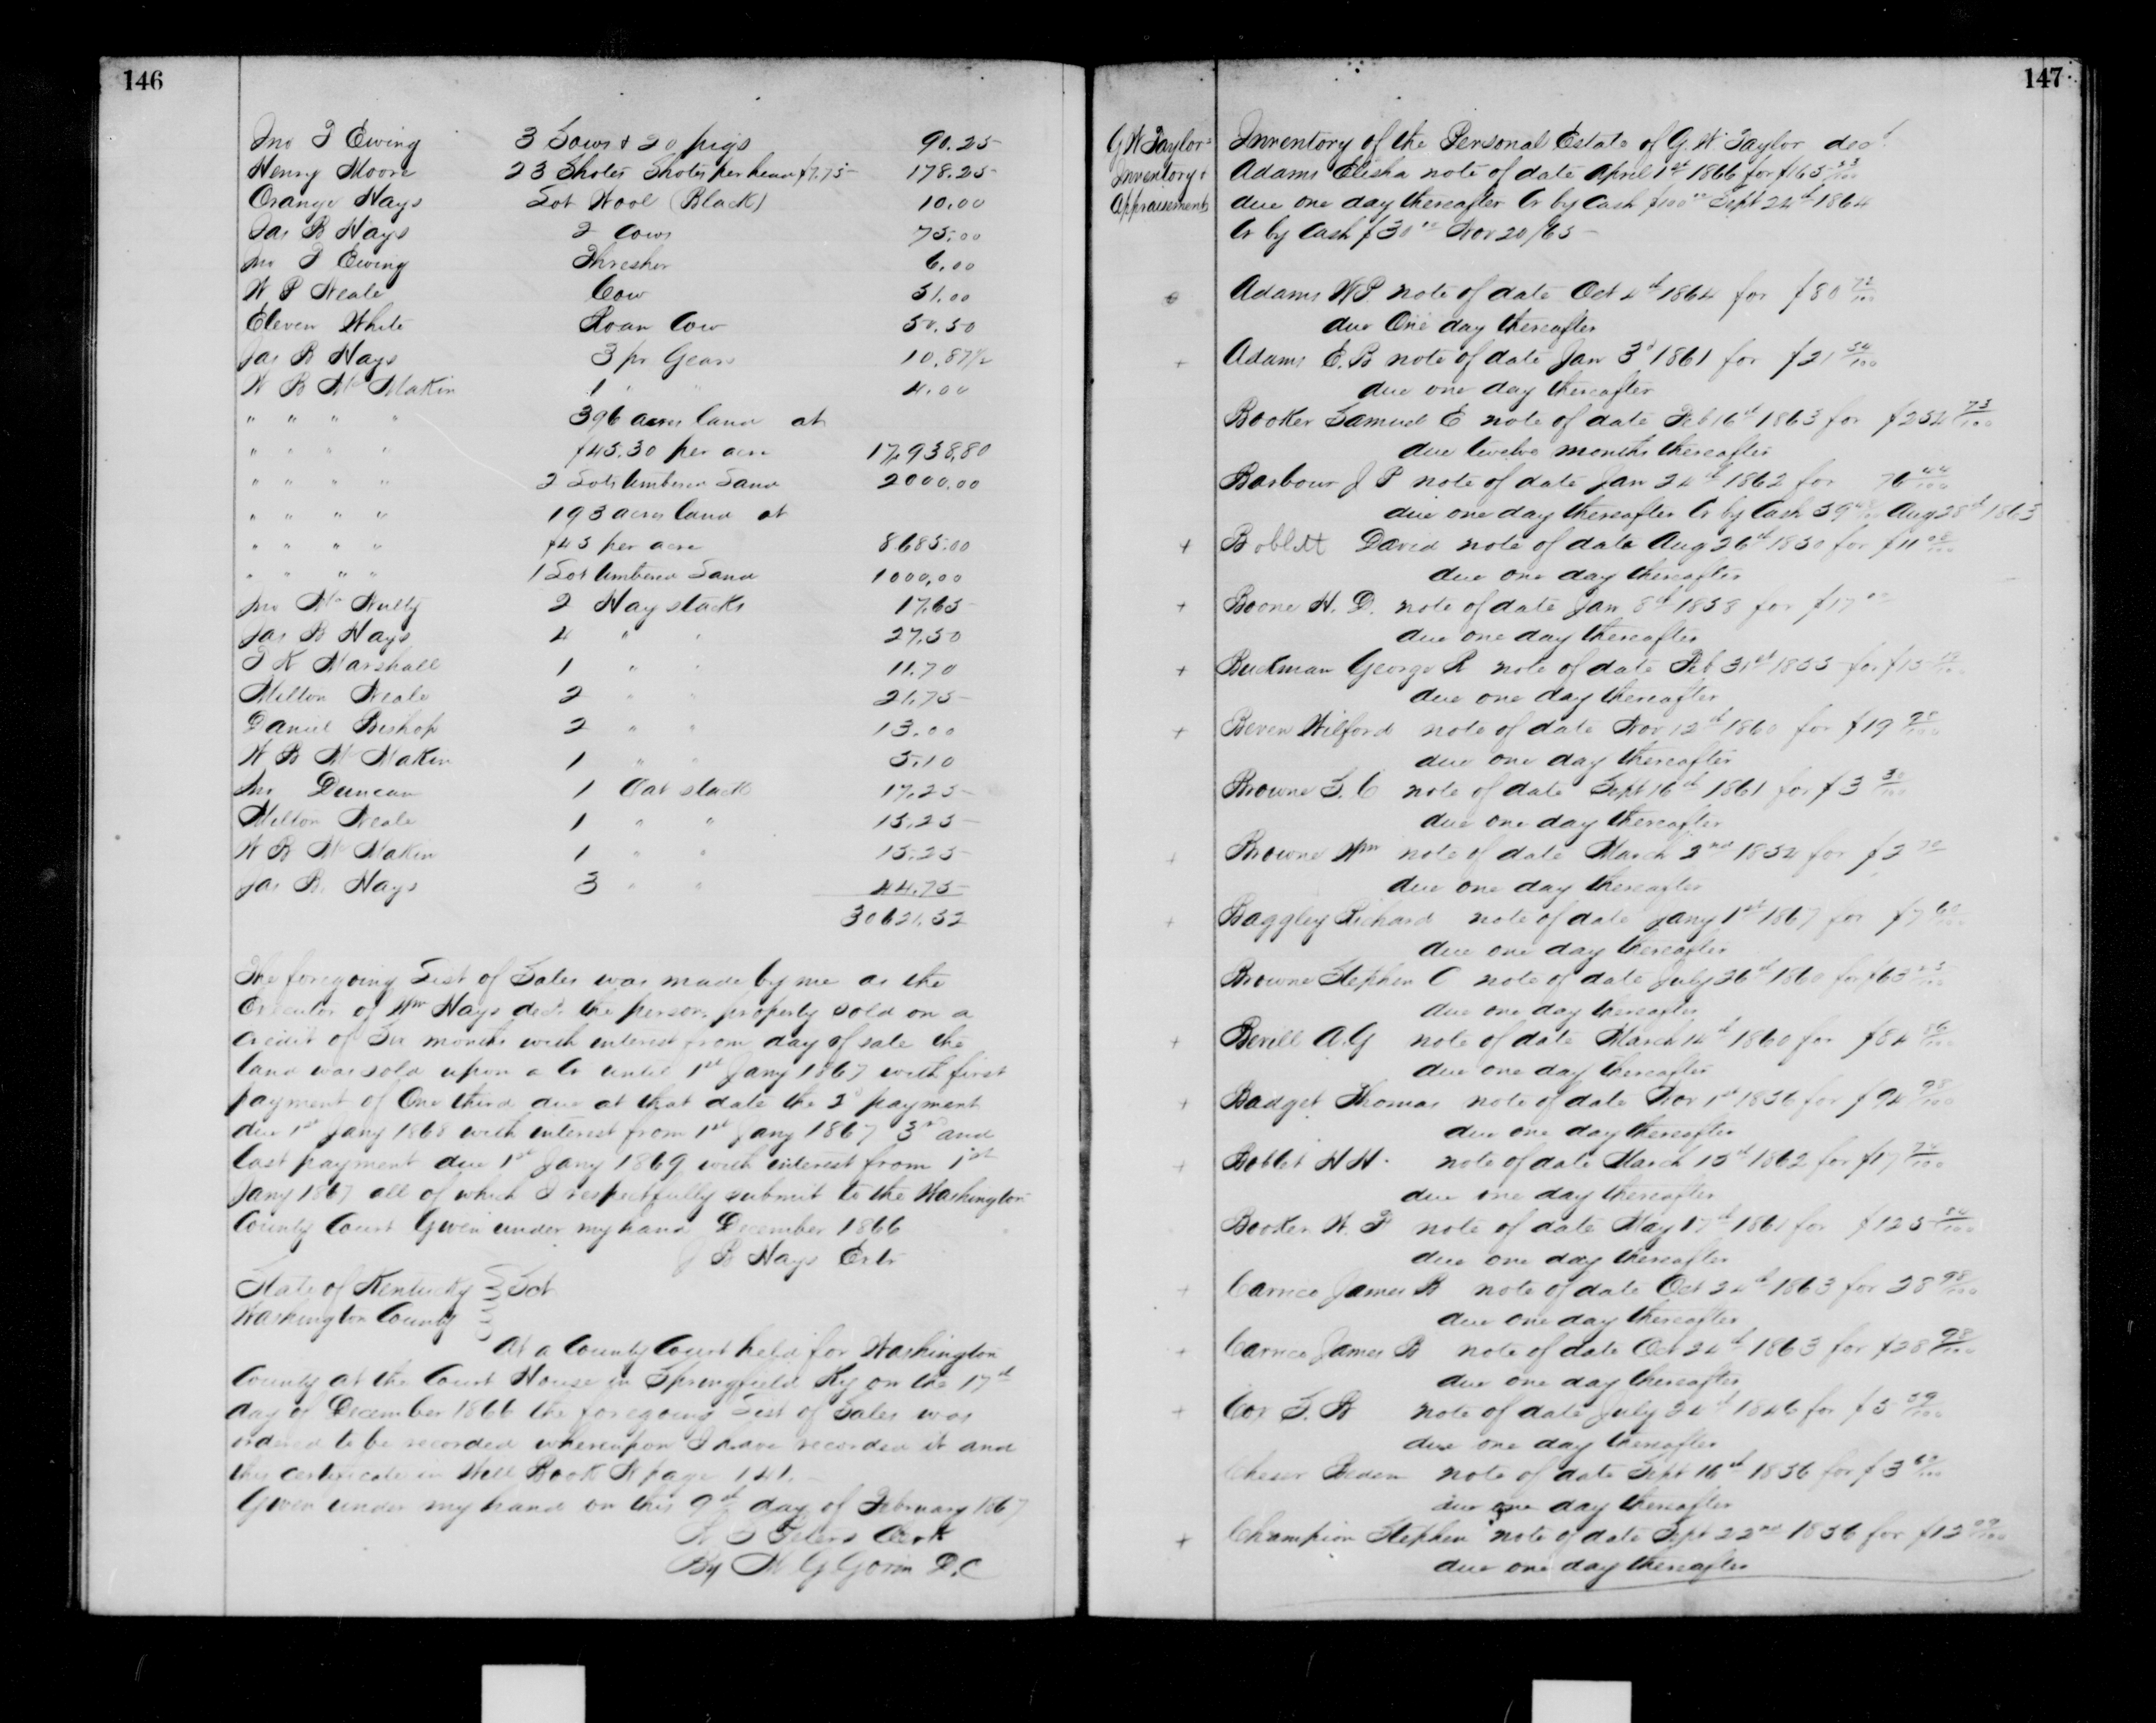 146
Jno T Ewing 3 Sows & 20 pigs 90.25
Henry Moore 23 Shotes Shotes per head $7.75 178.25
Orange Hays Lot Wool (Black) 10.00
Jas B Hays 2 Cows 75.00
Jno T Ewing Thresher 6.00
W P Neale Cow 51.00
Eleven White Roan Cow 50.50
Jas B Hays 3 pr Gears 10.87½
W B McMakin 1 " " 4.00
" " " " 396 acres land at
" " " " $45.30 per acre 17,938.80
" " " " 2 Lots timbered Land 2000.00
" " " " 193 acres land at
" " " " $45 per acre 8685.00
" " " " 1 Lot timbered Land 1000.00
Jno McNulty 2 Hay stacks 17.65
Jas B Hays 4 " " 27.50
T K Marshall 1 " " 11.70
Milton Neale 2 " " 21.75
Daniel Bishop 2 " " 13.00
W B McMakin 1 " " 5.10
Jno Duncan 1 Oat stack 17.25
Milton Neale 1 " " 15.25
W B McMakin 1 " " 15.25
Jas B. Hays 3 " " 44.75
30621.32
The foregoing List of Sales was made by me as the
Executor of Wm Hays decd. the person. property sold on a
credit of Six months with interest from day of sale the
land was sold upon a Cr until 1st Jany 1867 with first
payment of One third due at that date the 2d payment
due 1st Jany 1868 with interest from 1st Jany 1867 3rd and
last payment due 1st Jany 1869 with interest from 1st
Jany 1867 all of which I respectfully submit to the Washington
County Court Given under my hand December 1866
J B Hays Extr
State of Kentucky } Sct
Washington County
At a County Court held for Washington
County at the Court House in Springfield Ky on the 17th
day of December 1866 the foregoing List of Sales was
ordered to be recorded whereupon I have recorded it and
this certificate in Will Book page 141.
Given under my hand on this 9th day of February 1867
Peters Clerk
By D.C
147
G W Taylors
Inventory &
Appraisement
Inventory of the Personal Estate of G. W. Taylor decd
Adams Elisha note of date April 1st 1866 for $165 53/100
due one day thereafter Cr by Cash $100 00 Sept 24th 1864
Cr by Cash $30 00 Nov 20/65
Adams W P note of date Oct 4th 1864 for $80 72/100
due One day thereafter
+ Adams E. B note of date Jan 3d 1861 for $21 54/100
due one day thereafter
Booker Samuel E note of date Feb 16th 1863 for $254 73/100
due twelve months thereafter
Barbour J P note of date Jan 24th 1862 for 76 44/100
due one day thereafter Cr by Cash 59 Aug 28th 1863
+ Boblett David note of date Aug 26th 1850 for $11 08/100
due one day thereafter
+ Boone H. D. note of date Jan 8th 1858 for $17 00
due one day thereafter
+ Buckman George R note of date Feb 31st 1855 for $15
due one day thereafter
+ Beven Wilford note of date Nov 12th 1860 for $19 90/100
due one day thereafter
Browne S. C note of date Sept 16th 1861 for $3 30/100
due one day thereafter
+ Browne Wm note of date March 2nd 1852 for $2
due one day thereafter
+ Baggley Richard note of date Jany 1st 1867 for $7 60/100
due one day thereafter
Browne Stephen C note of date July 26th 1860 for $63
due one day thereafter
+ Bevill A. G note of date March 14th 1860 for $84 56/100
due one day thereafter
+ Badget Thomas note of date Nov 1st 1856 for $94 98/100
due one day thereafter
+ Boblet H H. note of date March 15th 1862 for $17 74/100
due one day thereafter
Booker W. F note of date May 17th 1861 for $125 54/100
due one day thereafter
+ Carrico James B note of date Oct 24th 1863 for 28 98/100
due one day thereafter
+ Carrico James B note of date Oct 24th 1863 for $28 98/100
due one day thereafter
+ Cox S. B note of date July 24th 1846 for $5 59/100
due one day thereafter
Cheser note of date Sept 16th 1856 for $3 60/100
due one day thereafter
+ Champion Stephen note of date Sept 22nd 1856 for $12 09/100
due one day thereafter